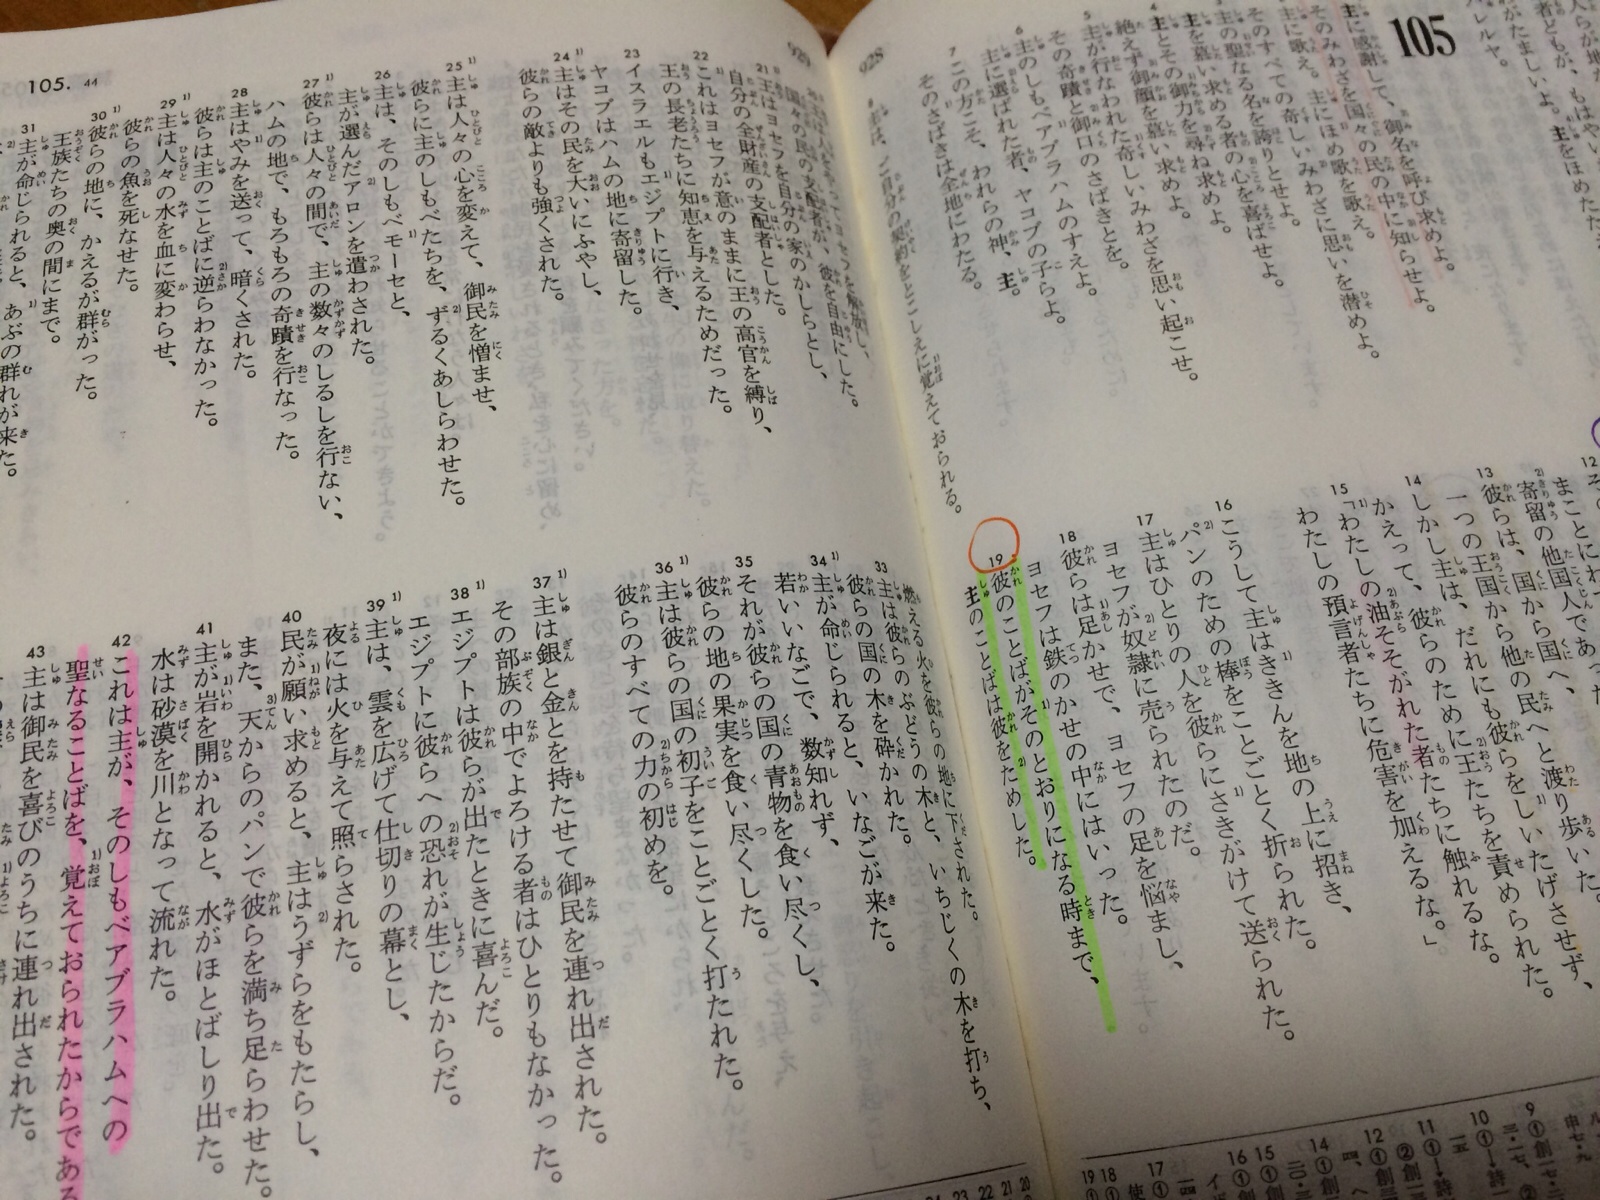 928
105
主に感謝して、御名を呼び求めよ。
そのみわざを国々の民の中に知らせよ。
主に歌え。主にほめ歌を歌え。
そのすべての奇しいみわざに思いを潜めよ。
主の聖なる名を誇りとせよ。
主を慕い求める者の心を喜ばせよ。
4 主とその御力を尋ね求めよ。
絶えず御顔を慕い求めよ。
5 主が行なわれた奇しいみわざを思い起こせ。
その奇蹟と御口のさばきとを。
6 主のしもべアブラハムのすえよ。
主に選ばれた者、ヤコブの子らよ。
7 この方こそ、われらの神、主。
そのさばきは全地にわたる。
8 主は、ご自分の契約をとこしえに覚えておられる。
まことにわ
寄留の他国人であっ
13 彼らは、国から国へ、
一つの王国から他の民へと渡り歩いた。
14 しかし主は、だれにも彼らをしいたげさせず、
かえって、彼らのために王たちを責められた。
15 「わたしの油そそがれた者たちに触れるな。
わたしの預言者たちに危害を加えるな。」
16 こうして主はききんを地の上に招き、
パンのための棒をことごとく折られた。
17 主はひとりの人を彼らにさきがけて送られた。
ヨセフが奴隷に売られたのだ。
18 彼らは足かせで、ヨセフの足を悩まし、
ヨセフは鉄のかせの中にはいった。
19 彼のことばがそのとおりになる時まで、
主のことばは彼をためした。
929
105. 44
国々の民の支配者が、彼を自由にした。
21 主はヨセフを自分の家のかしらとし、
自分の全財産の支配者とした。
22 これはヨセフが意のままに王の高官を縛り、
王の長老たちに知恵を与えるためだった。
23 イスラエルもエジプトに行き、
ヤコブはハムの地に寄留した。
24 主はその民を大いにふやし、
彼らの敵よりも強くされた。
25 主は人々の心を変えて、御民を憎ませ、
彼らに主のしもべたちを、ずるくあしらわせた。
26 主は、そのしもべモーセと、
主が選んだアロンを遣わされた。
27 彼らは人々の間で、主の数々のしるしを行ない、
ハムの地で、もろもろの奇蹟を行なった。
28 主はやみを送って、暗くされた。
彼らは主のことばに逆らわなかった。
29 主は人々の水を血に変わらせ、
彼らの魚を死なせた。
30 彼らの地に、かえるが群がった。
王族たちの奥の間にまで。
31 主が命じられると、あぶの群れが来た。
燃える火を彼らの地に下された。
33 主は彼らのぶどうの木と、いちじくの木を打ち、
彼らの国の木を砕かれた。
34 主が命じられると、いなごが来た。
若いいなごで、数知れず、
35 それが彼らの国の青物を食い尽くし、
彼らの地の果実を食い尽くした。
36 主は彼らの国の初子をことごとく打たれた。
彼らのすべての力の初めを。
37 主は銀と金とを持たせて御民を連れ出された。
その部族の中でよろける者はひとりもなかった。
38 エジプトは彼らが出たときに喜んだ。
エジプトに彼らへの恐れが生じたからだ。
39 主は、雲を広げて仕切りの幕とし、
夜には火を与えて照らされた。
40 民が願い求めると、主はうずらをもたらし、
また、天からのパンで彼らを満ち足らわせた。
41 主が岩を開かれると、水がほとばしり出た。
水は砂漠を川となって流れた。
42 これは主が、そのしもべアブラハムへの
聖なることばを、覚えておられたからである
43 主は御民を喜びのうちに連れ出された。